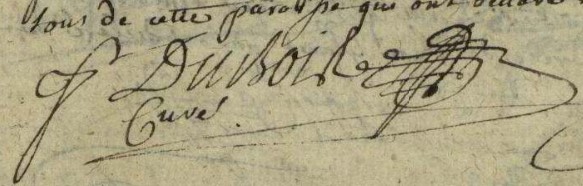 tous de cette paroisse qui ont déclaré
f Dubois
Curé